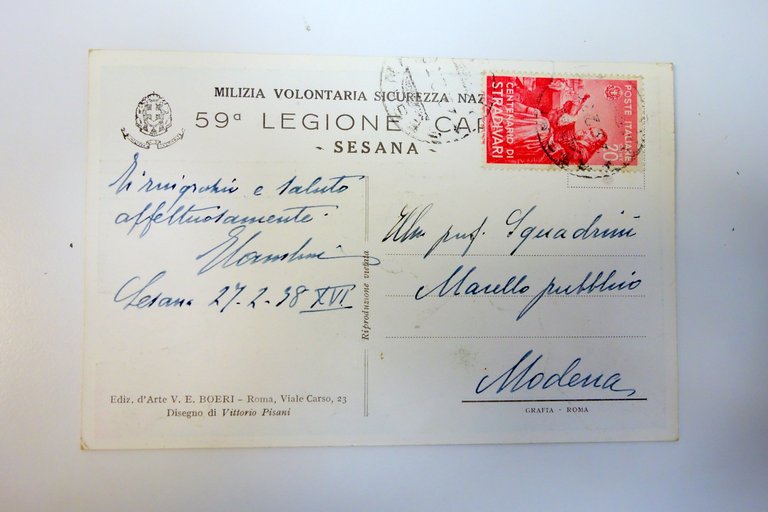 MILIZIA VOLONTARIA SICUREZZA NAZ
59ª LEGIONE CA
- SESANA
POSTE ITALIANE
20
CENTENARIO DI
STRADIVARI
Ti ringrazio e saluto
affettuosamente.
Sesana 27-2-38 XVI
Riproduzione vietata
Ill.mo prof. Squadrini
Macello pubblico
Modena
Ediz. d'Arte V. E. BOERI - Roma, Viale Carso, 23
Disegno di Vittorio Pisani
GRAFIA - ROMA